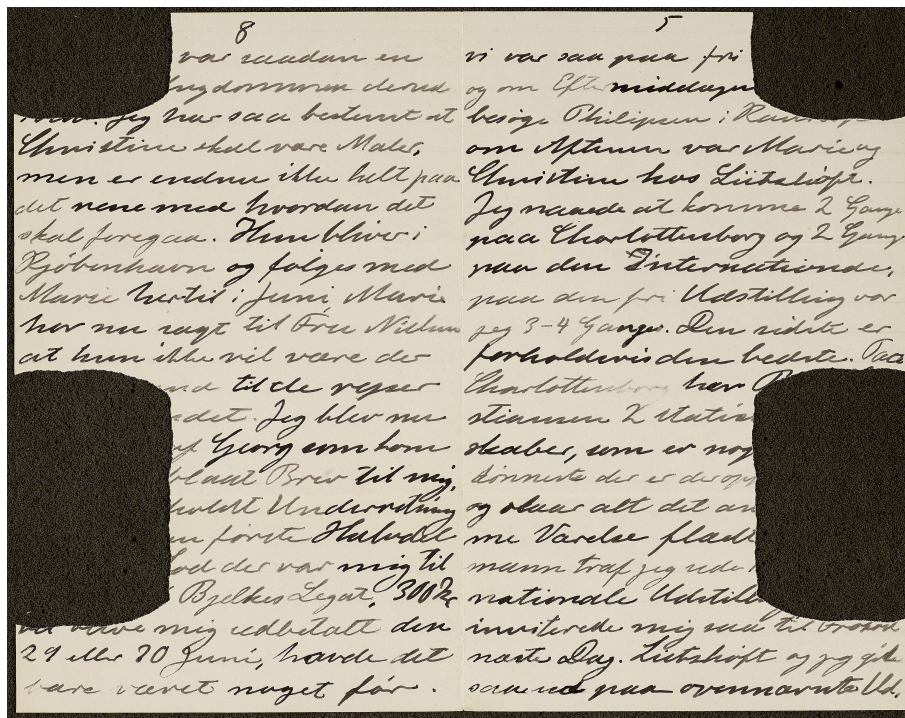 8
var saadan en
ungdommen derud
Jeg har saa bestemt at
Christine skal være Maler,
men er endnu ikke helt paa
det rene med hvordan det
skal foregaa. Hun bliver i
Kjøbenhavn og følges med
Marie hertil i Juni Marie
har nu sagt til Fru Nielsen
at hun ikke vil være der
til de rejser
det. Jeg blev nu
af Georg som kom
Brev til mig,
holdt Underretning
en første Halvdel
der var mig til
Bjelkes Legat, 300 Kr
vil blive mig udbetalt den
29 eller 30 Juni, havde det
bare været noget før.
5
vi var saa paa fri
og om Eftermiddagen
besøge Philipsen i
om Aftenen var Marie og
Christine hos Lütshøft.
Jeg naaede at komme 2 Gange
paa Charlottenborg og 2 Gange
paa den Internationale,
paa den fri Udstilling var
jeg 3-4 Gange. Den sidste er
forholdsvis den bedste. Paa
Charlottenborg har
stiansen 2
skaber, som er nog
kønneste der er derop
og slaar alt det an
me Værelse fladt
mann traf jeg ude
nationale Udstill
inviterede mig saa til Frokost
næste Dag. Lütshøft og jeg gik
saa ud paa ovennævnte Ud.